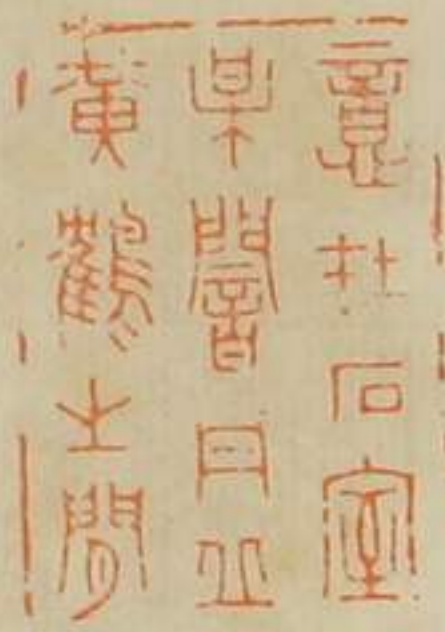 意在石室
某闇丹丘
黃鶴之間